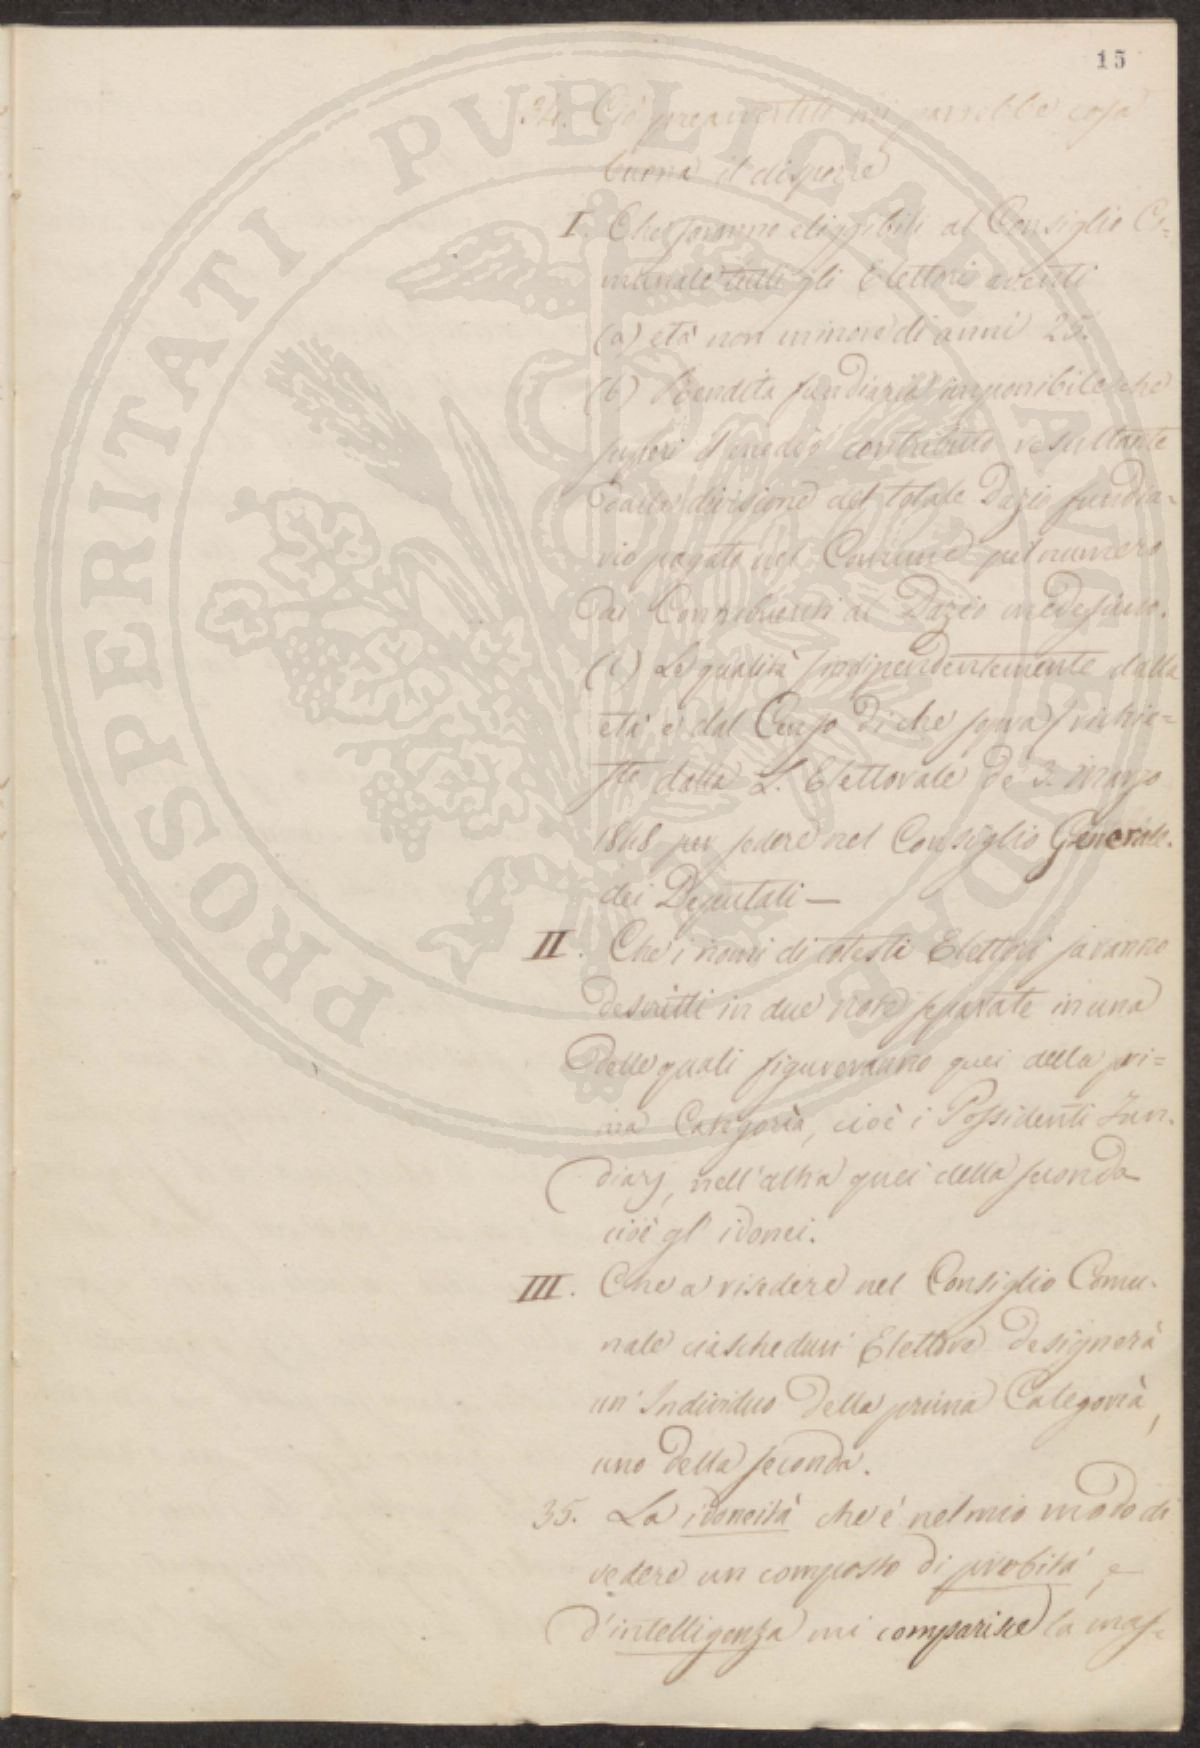 15
34. Ciò preavvertito mi parrebbe cosa
buona il disporre
I. Che saranno eleggibili al Consiglio Co=
munale tutti gli Elettori aventi
(a) età non minore di anni 25.
(b) Rendita fundiaria imponibile che
superi il medio contributo resultante
dalla divisione del totale Dazio fundia=
rio pagato nel Comune pel numero
dai Contribuenti al Dazio medesimo.
(c) Le qualità (indipendentemente dalla
età e dal Censo di che sopra) richie=
ste dalla L. Elettorale de 3. Marzo
1848 per sedere nel Consiglio Generale
dei Deputati —
II. Che i nomi di cotesti Elettori saranno
descritti in due note separate in una
delle quali figureranno quei della pri=
ma Categoria, cioè i Possidenti Fun=
diarj, nell'altra quei della seconda
cioè gl' idonei.
III. Che a risedere nel Consiglio Comu=
nale ciaschedun Elettore designerà
un' Individuo della prima Categoria,
uno della seconda.
35. La idoneità che è nel mio modo di
vedere un composto di probità, e
d'intelligenza mi comparisce la mas=
PROSPERITATI PUBLICAE AUGENDAE